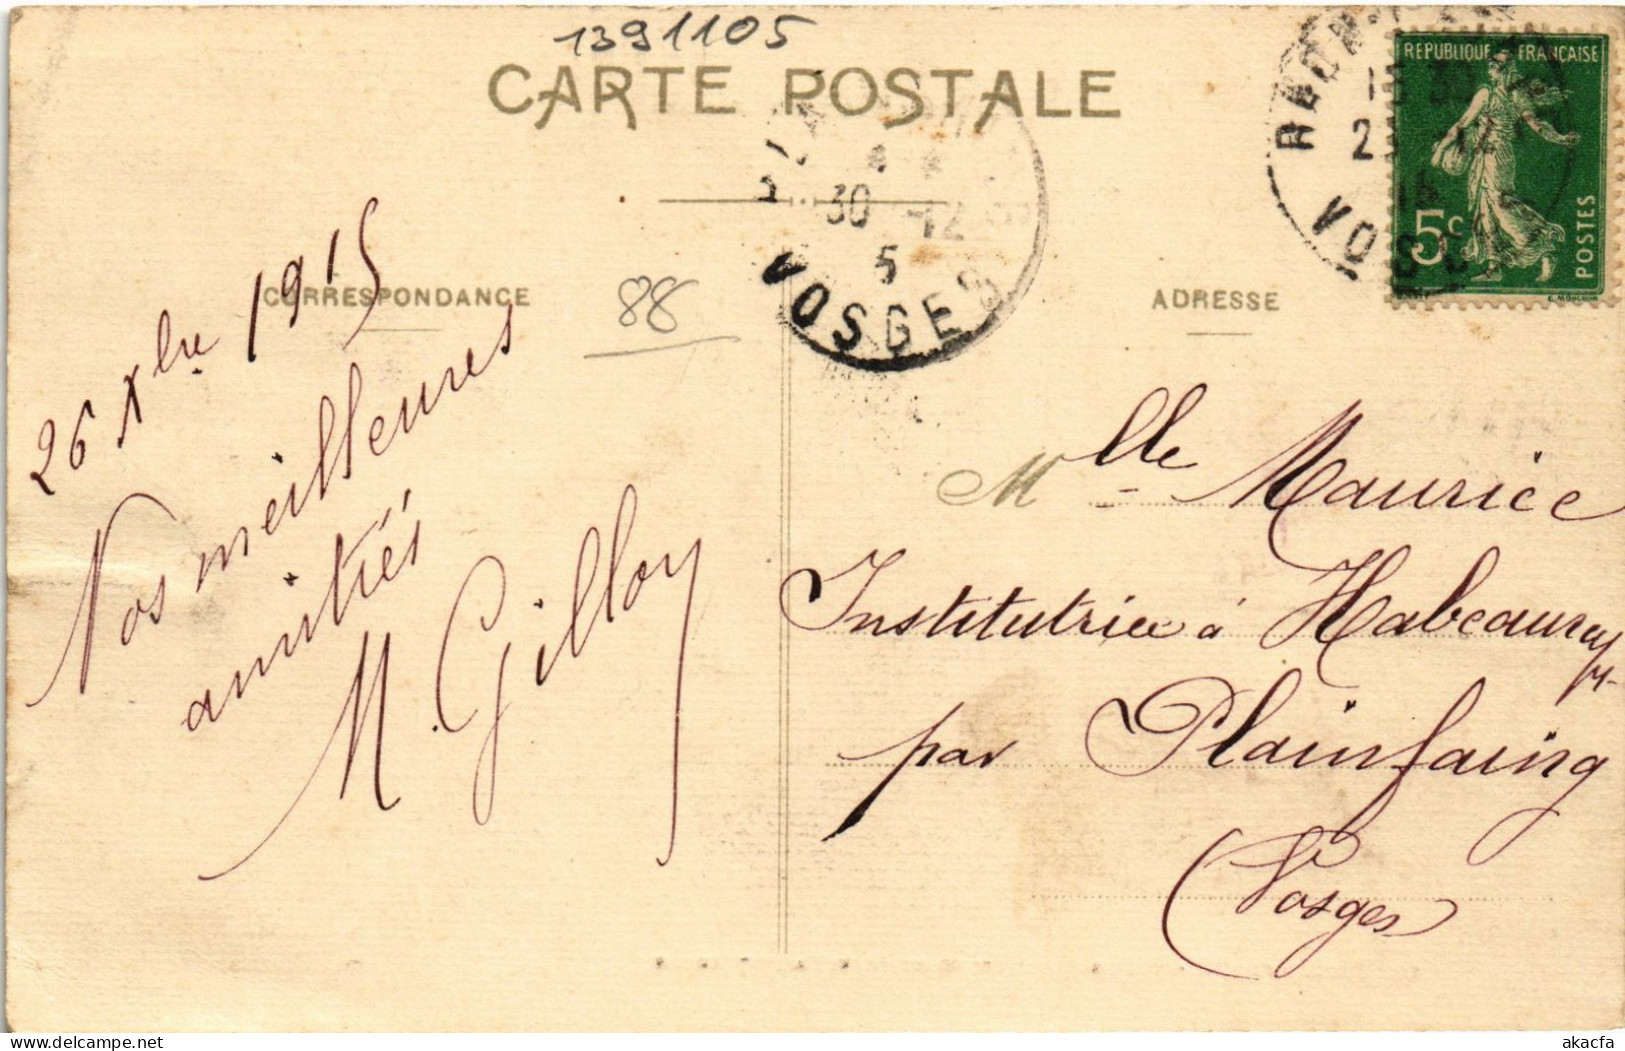 1391105
CARTE POSTALE
REPUBLIQUE FRANÇAISE
5c
POSTES
VOSGES
30 -12
5
VOSGES
CORRESPONDANCE
88
ADRESSE
26 Xbre 1915
Nos meilleures
amitiés
M. Gilloy
Mlle Maurice
Institutrice à Habeaurupt
par Plainfaing
(Vosges)
akacfa